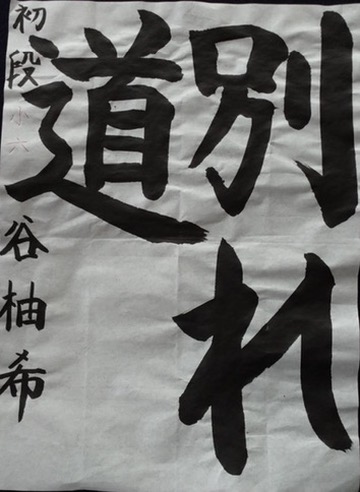 別れ
道
初段
小六
谷柚希